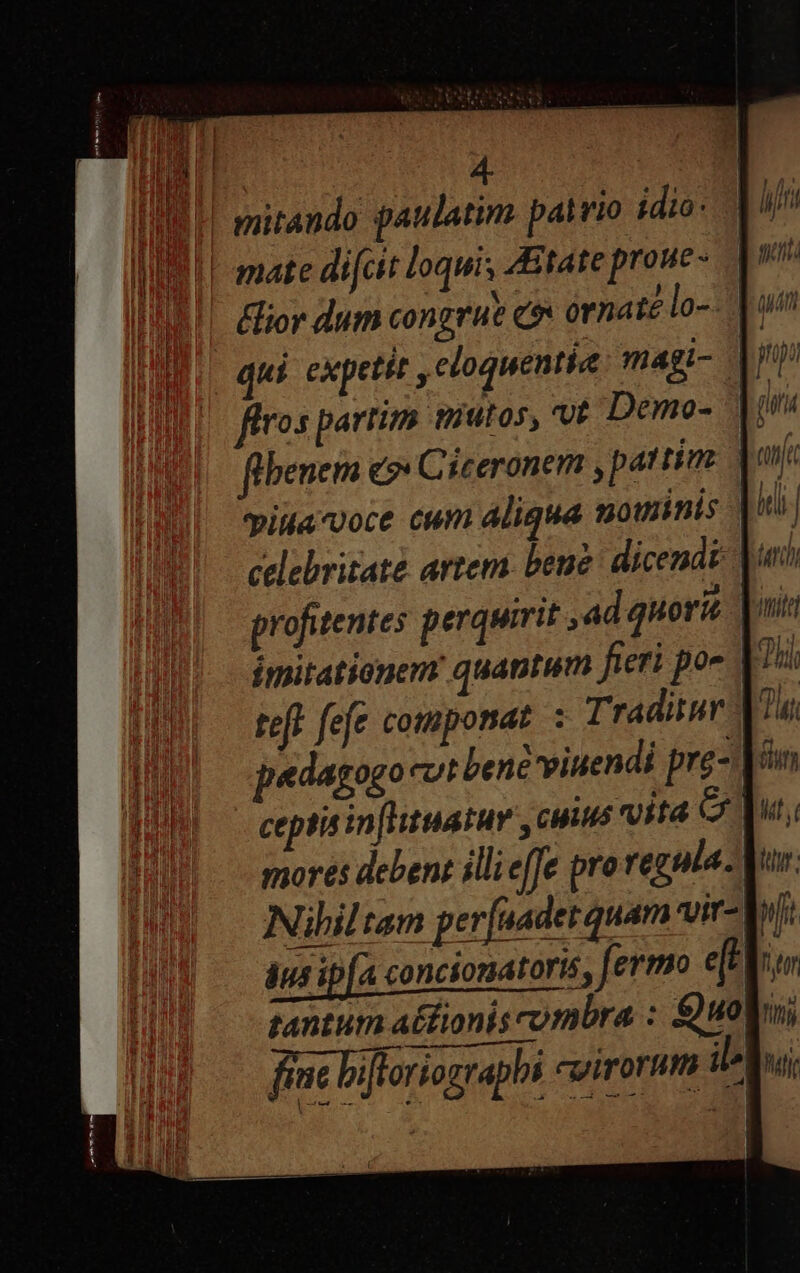 4
mitando paulatim patrio idio-
mate diſcit loqui, Ætate proue-
ctior dum congruè & ornatè lo-
qui expetit, eloquentiæ magi-
ſtros partim mutos, vt Demo-
ſthenem & Ciceronem, partim
viua voce cum aliqua nominis
celebritate artem benè dicendi
profitentes perquirit, ad quorũ
imitationem quantum fieri po-
teſt ſeſe componat : Traditur
pædagogo vt benè viuendi præ-
ceptis inſtituatur, cuius vita &
mores debent illi eſſe pro regula.
Nihil tam perſuadet quam vir-
tus ipſa concionatoris, ſermo eſt
tantum actionis vmbra : Quo
fine hiſtoriographi virorum il-